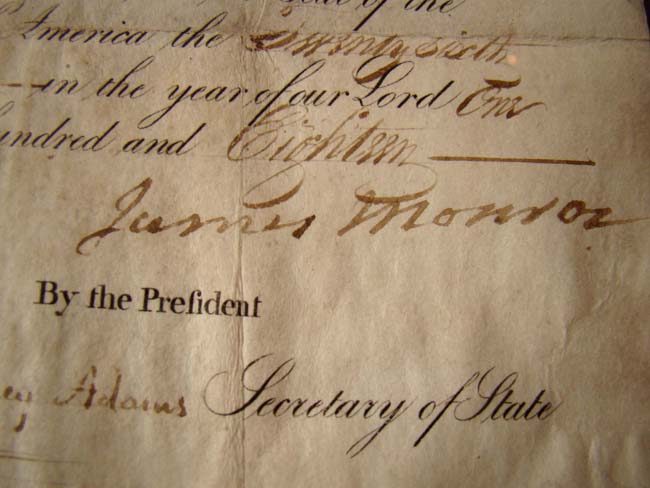 of the
America the Twenty Sixth
in the year of our Lord One
hundred and Eighteen
James Monroe
By the Preſident
ey Adams Secretary of State